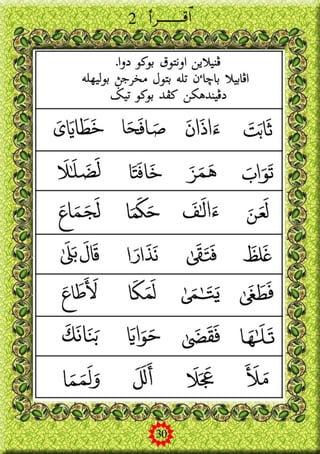 2 اقــرأ
ڤنيلاين اونتوق بوکو دوا.
اڤابيلا باچاءن تله بتول مخرجڽ بوليهله
دڤيندهکن کڤد بوکو تيݢ
ثَابَتَ ءَاذَانَ صَافَحَا خَطَايَايَ
تَوَابَ هَمَزَ خَافَتَا لَضَلَـٰلَا
لَعَنَ ءَالَـٰفَ حَكَمَا لَجَمَاعَ
غَلَظَ فَتَقَـٰ نَذَارَا قَالَ بَلَـٰ
فَطَغَـٰ يَتَـٰمَـٰ لَمَكَا لَأَطَاعَ
تَـلَـٰهَا فَقَضَـٰ حَوَايَا بَنَانَكَ
مَلَأَ عَجَلَا أَلَلَ وَلَمَمَا
30